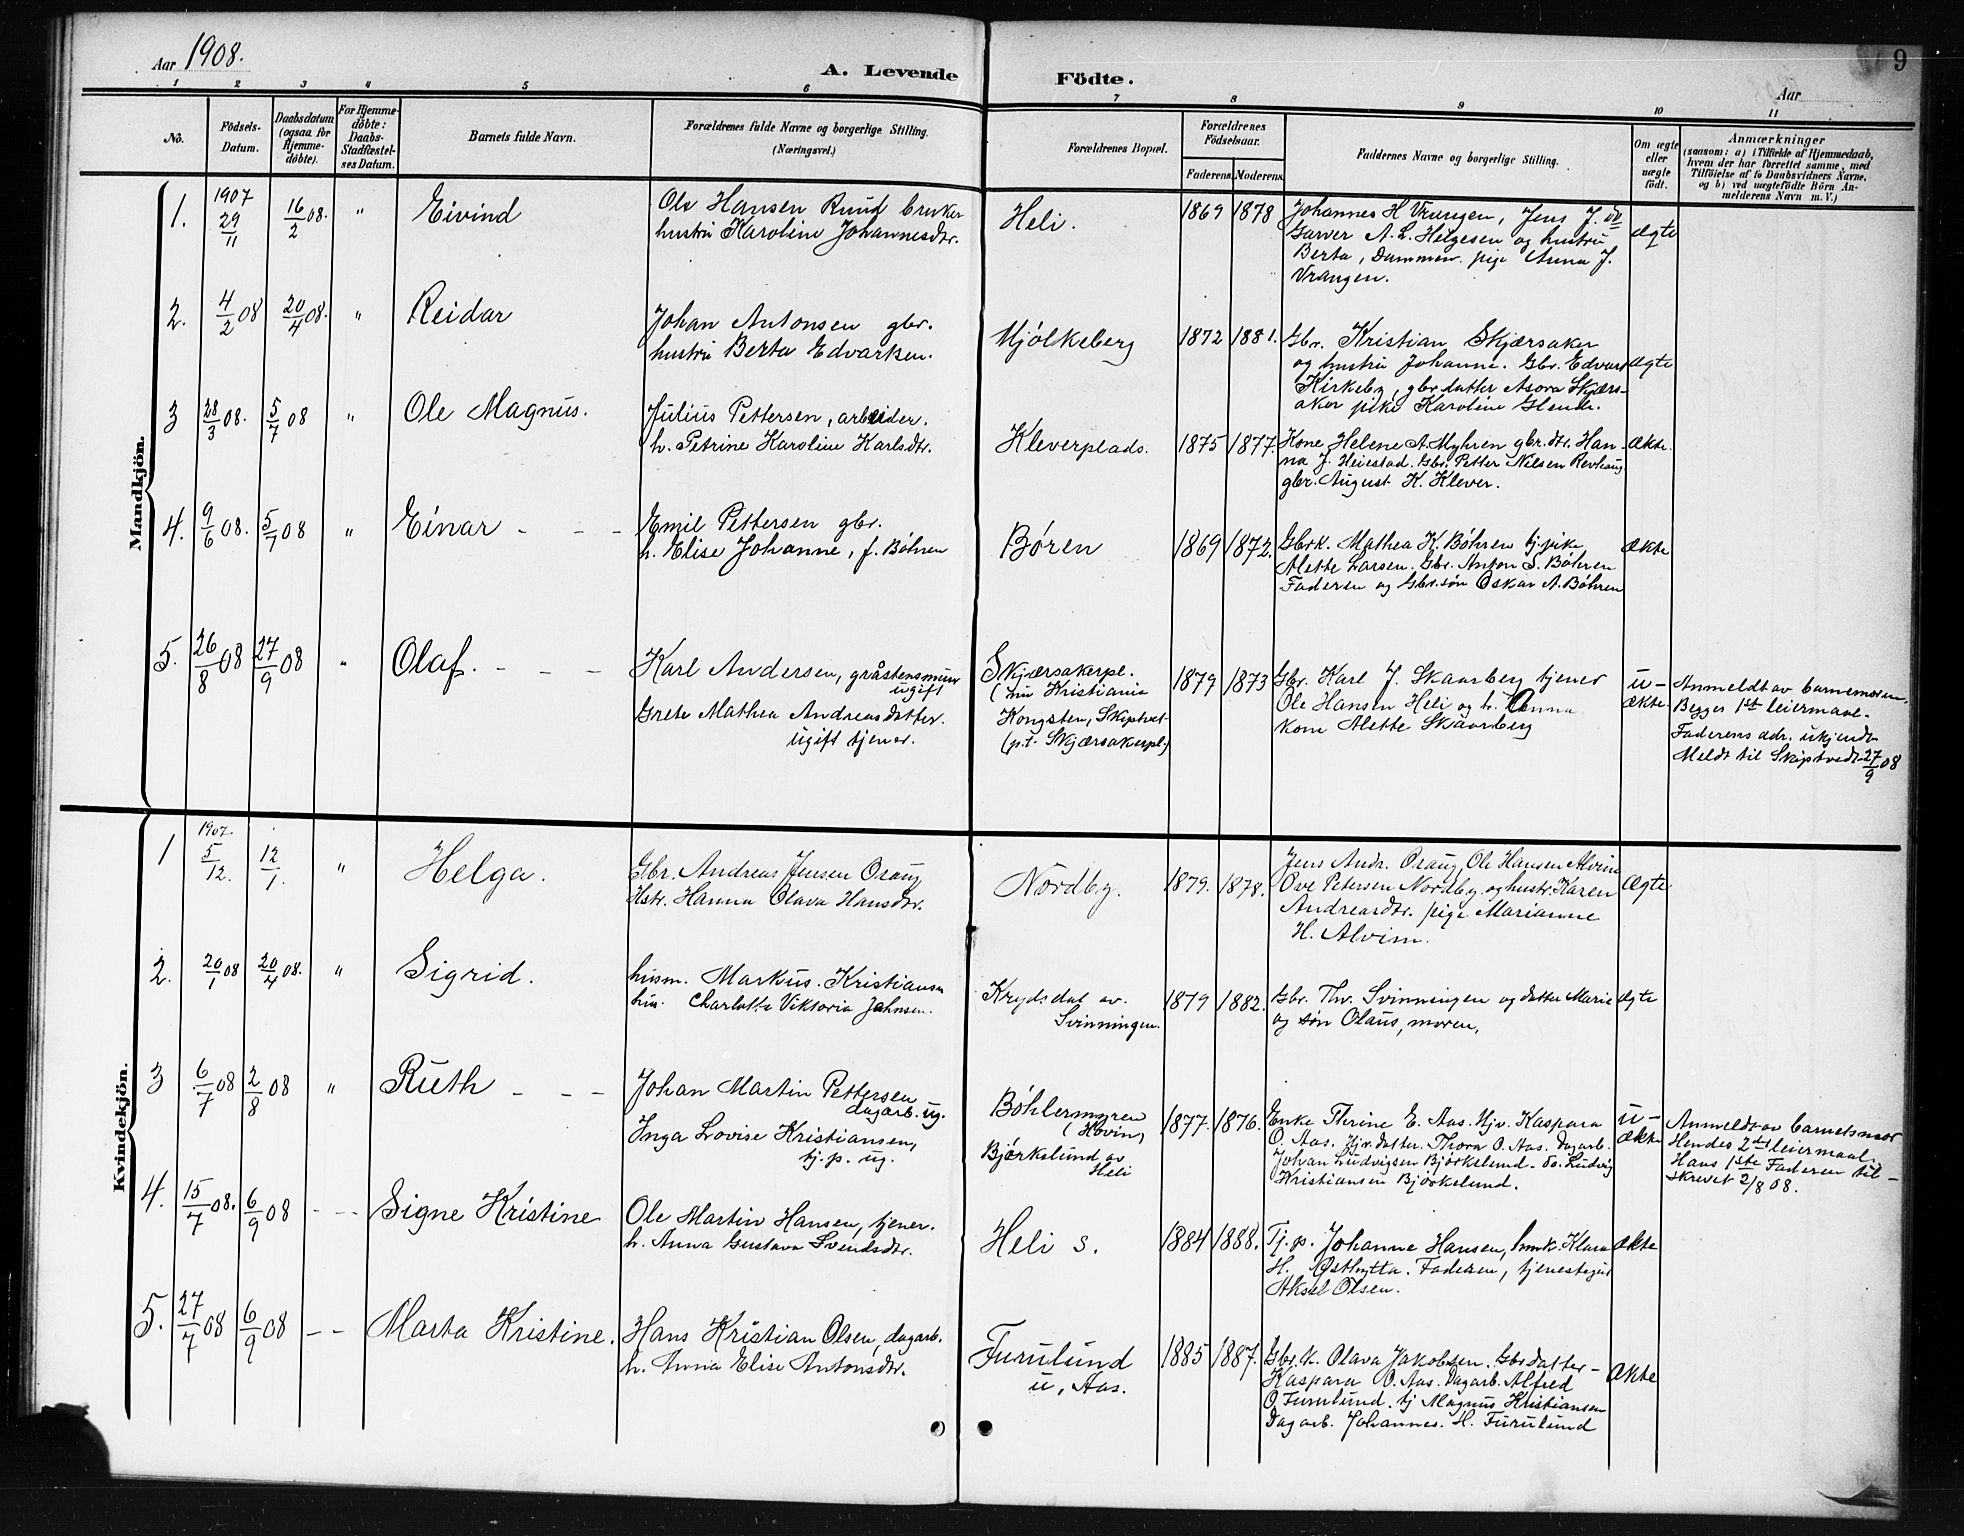 Aar 1908.
A. Levende Födte.
9
Aar
1 2 3 4 5 6 7 8 9 10 11
No.
Födsels-
Datum.
Daabsdatum
(ogsaa for
Hjemme-
döbte).
For Hjemme-
döbte:
Daabs-
Stadfæstel-
ses Datum.
Barnets fulde Navn.
Forældrenes fulde Navne og borgerlige Stilling.
(Næringsvei.)
Forældrenes Bopæl.
Forældrenes
Födselsaar.
Faderens. Moderens.
Faddernes Navne og borgerlige Stilling.
Om ægte
eller
uægte
födt.
Anmærkninger
(saasom: a) i Tilfælde af Hjemmedaab,
hvem der har forrettet samme, med
Tilföielse af to Daabsvidners Navne,
og b) ved uægtefödte Börn An-
melderens Navn m. V.)
Mandkjön.
1. 1907 29/11 16/2 08. " Eivind
Ole Hansen Ruud bruker
hustru Karoline Johannesdtr.
Heli. 1869 1878
Johannes H Vrangen, Jens J. do
Garver A. L. Helgesen og hustru
Berta, Dammen. pige Anna J.
Vrangen.
ægte
2. 4/2 08 20/4 08. " Reidar
Johan Antonsen gbr.
hustru Berta Edvarksen.
Mjölkeberg 1872 1881.
Gbr. Kristian Skjærsaker
og hustru Johanne. Gbr. Edvard
Kirkeby, gbr.datter Asora Skjærs-
aker pike Karoline Glende.
ægte
3 28/3 08. 5/7 08 " Ole Magnus.
Julius Pettersen, arbeider.
h. Petrine Karoline Karlsdtr.
Kleverplads. 1875 1877.
Kone Helene A. Myhren gbr.dtr. Han-
na J. Heiestad. Gbr. Petter Nilsen Revhaug
gbr. August K. Klever.
ækte.
4. 9/6 08. 5/7 08 " Einar - - -
Emil Pettersen gbr.
h. Elise Johanne, f. Böhren
Børen 1869 1872.
Gbrk. Mathea K. Böhren tj.pike
Alette Larsen. Gbr. Anton S. Böhren
Faderen og Gbr.søn Oskar A. Böhren
ækte
5. 26/8 08 27/9 08 " Olaf. - - -
Karl Andersen, gråstensmurer
ugift
Grete Mathea Andreasdatter.
ugift tjener.
Skjærsakerpl.
(nu Kristiania
Kongsten, Skiptvet
(p.t. Skjærsakerpl.)
1879 1873
Gbr. Karl J. Skaarberg tjener
Ole Hansen Heli og h. Anna
kone Alette Skaarberg
u-
ækte
Anmeldt av barnemoren.
Begges 1st leiermaal.
Faderens adr. ukjendt
Meldt til Skiptvedt 27/9 08
Kvindekjön.
1 1907. 5/12. 12/1. " Helga.
Gbr. Andreas Jensen Oraug
Hstr. Hanna Olava Hansdtr.
Nordby. 1879. 1878.
Jens Andr. Oraug, Ole Hansen Alvim
Ove Petersen Nordby og hustr. Karen
Andreasdtr. pige Marianne
H. Alvim.
ægte
2. 20/1 08 20/4 08. " Sigrid.
husm. Markus. Kristiansen
hu. Charlotte Viktoria Jahnsen.
Krydsdal av.
Svinningen.
1879 1882.
Gbr. Thv. Svinningen og datter Marie
og søn Olaus, moren.
ægte
3 6/7 08 2/8 08 " Ruth - - -
Johan Martin Pettersen
dagarb. ug.
Inga Lovise Kristiansen,
tj. p. ug.
Böhlermyren
(Hovin)
Bjørkelund av
Heli
1877. 1876.
Enke Thrine E. Aas. Hjv. Kaspara
O. Aas. Hjv.datter. Thora O. Aas. Dagarb.
Johan Ludvigsen Björkelund - do. Ludvig
Kristiansen Björkelund.
u-
ækte
Anmeldt av barnetsmor
Hendes 2det leiermaal.
Hans 1ste Faderen til-
skrevet 2/8 08.
4. 15/7 08. 6/9 08 - -- Signe Kristine
Ole Martin Hansen, tjener.
h. Anna Gustava Svendsdtr.
Heli s. 1884 1888.
Tj. p. Johanne Hansen, Klara
H. Østhytta. Faderen, tjenestegut
Aksel Olsen.
ækte
5. 27/7 08 6/9 08 -- Marta Kristine.
Hans Kristian Olsen, dagarb.
h. Anna Elise Antonsdtr.
Furulund
u, Aas.
1885 1887.
Gbr. k. Olava Jakobsen. Gbrdatter -
Kaspara O. Aas. Dagarb. Alfred
O. Furulund. tj Magnus Kristiansen
Dagarb. Johannes. H. Furulund
ækte